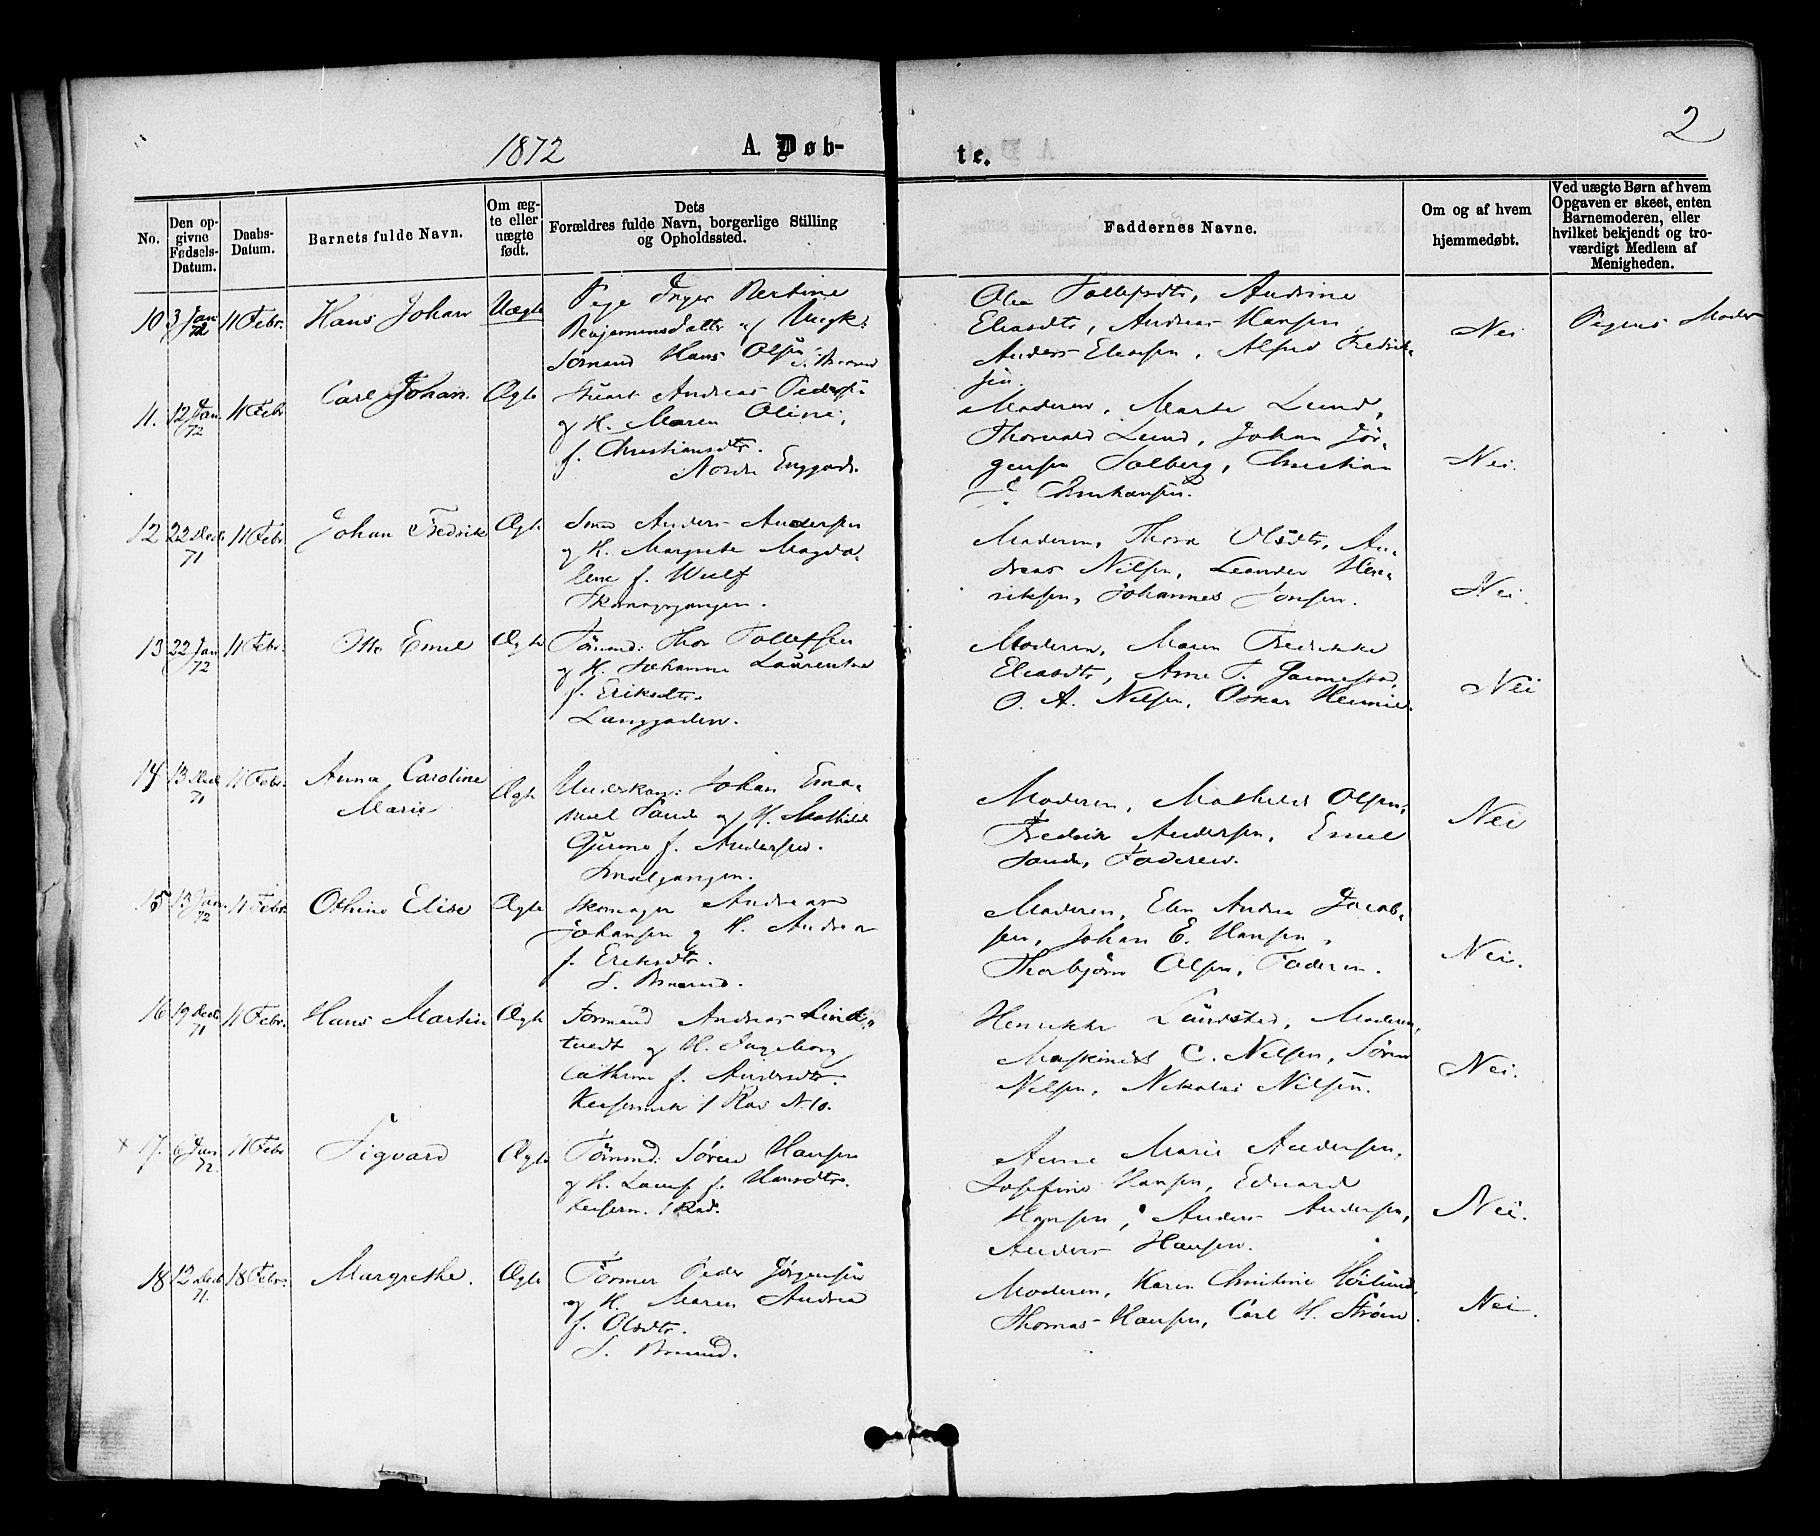 1872
A. Døb-
te.
2
No.
Den op-
givne
Fødsels-
Datum.
Daabs-
Datum.
Barnets fulde Navn.
Om æg-
te eller
uægte
født.
Dets
Forældres fulde Navn, borgerlige Stilling
og Opholdssted.
Faddernes Navne.
Om og af hvem
hjemmedøbt.
Ved uægte Børn af hvem
Opgaven er skeet, enten
Barnemoderen, eller
hvilket bekjendt og tro-
værdigt Medlem af
Menigheden.
10 3 Jan 72 11 Febr. Hans Johan Uægte
Pige Inger Bertine
Benjaminsdatter og Ungk:
Sømand Hans Olsen
Olea Tollefsdtr, Andrine
Eliasdtr, Andreas Hansen,
Anders Eliasen, Alfred Fredrik-
sen.
Nei
Pigens Moder
11. 12 Jan 72 11 Febr Carl Johan. Ægte
Andreas Peders:
og H. Maren Oline,
f. Christiansdtr.
Nordre Enggade.
Moderen, Marte Lund,
Thorvald Lund, Johan Jør-
gensen Solberg, Christian
Nei.
12 22 Decb 71 11 Febr Johan Fredrik Ægte
Smed Anders Andersen
og H. Margrete Magda-
lene f. Wulf
Moderen, Thora Olsdtr, An-
dreas Nilsen, Leander Hen-
riksen, Johannes Jonsen.
Nei.
13 22 Jan 72 11 Febr. Otto Emil Ægte
Tømmd: Thor Tollefsen
og H. Johanne Laurentse
f. Eriksdtr.
Langgaden.
Moderen, Maren Fredrikke
Eliasdtr, Arne T.
O. A. Nilsen, Oskar
Nei
14 13 Decb 71 11 Febr. Anna Caroline
Marie
Ægte
Johan Ema-
nuel Sande og H. Mathilde
Gurine f. Andersen.
Smalgangen.
Moderen, Mathilde Olsen,
Fredrik Andersen, Emil
Sande, Faderen.
Nei
15 13 Jan 72 11 Febr Othine Elise Ægte
Skomager Andreas
Johansen og H. Andrea
f. Eriksdtr.
Moderen, Elen Andrea Jacob-
sen, Johan E. Hansen,
Thorbjørn Olsen, Faderen.
Nei.
16 19 Decb 71 11 Febr. Hans Martin Ægte
Tømmand Andreas Lind-
tvedt og H. Ingeborg
Cathrine f. Andersdtr.
1 Rad N. 10.
Henrikke Lundsted, Moderen,
Maskinist C. Nilsen, Søren
Nilsen, Nikolai Nilsen.
Nei.
x 17. 6 Jan 72. 11 Febr Sigvard Ægte
Tømmd: Søren Hansen
og H. f. Hansdtr.
1 Rad.
Anne Marie Andersen,
Josefine Hansen, Edvard
Hansen, Anders Andersen,
Anders Hansen.
Nei.
18 12 Decb 71. 18 Febr. Margrethe. Ægte
Former Peder Jørgensen
og H. Maren Andrea
f. Olsdtr.
Moderen, Karen Christine
Thomas Hansen, Carl H. Strøm.
Nei.